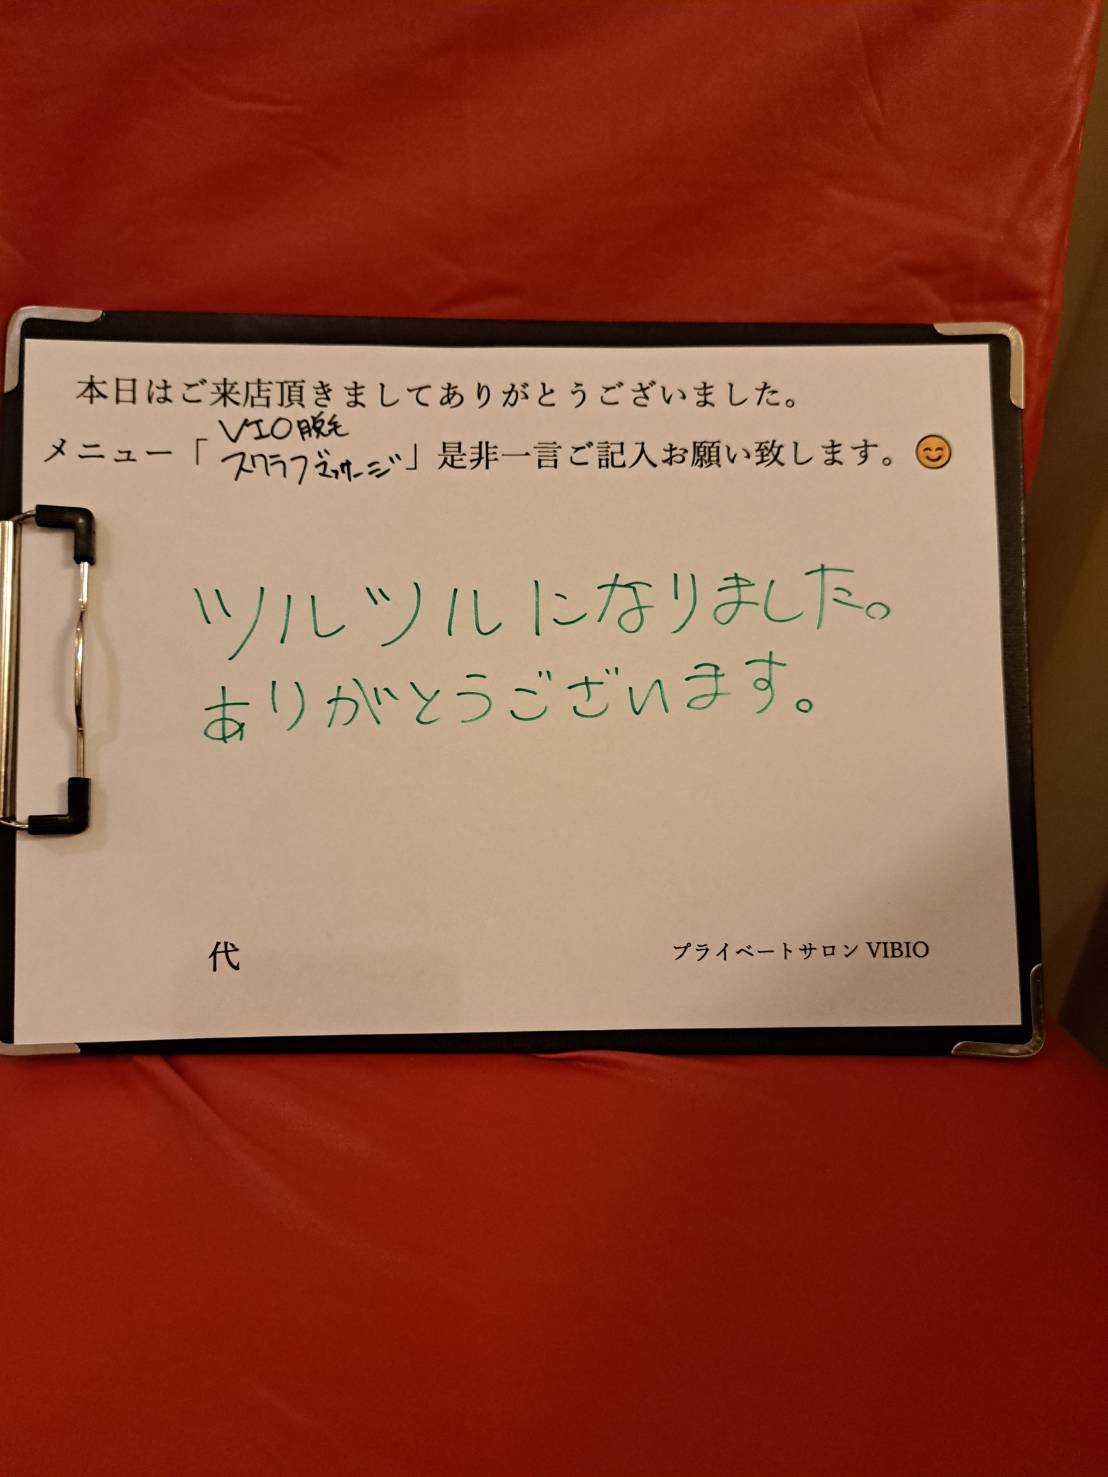 本日はご来店頂きましてありがとうございました。
メニュー「VIO脱毛
スクラブマッサージ」是非一言ご記入お願い致します。😊
ツルツルになりました。
ありがとうございます。
代
プライベートサロン VIBIO